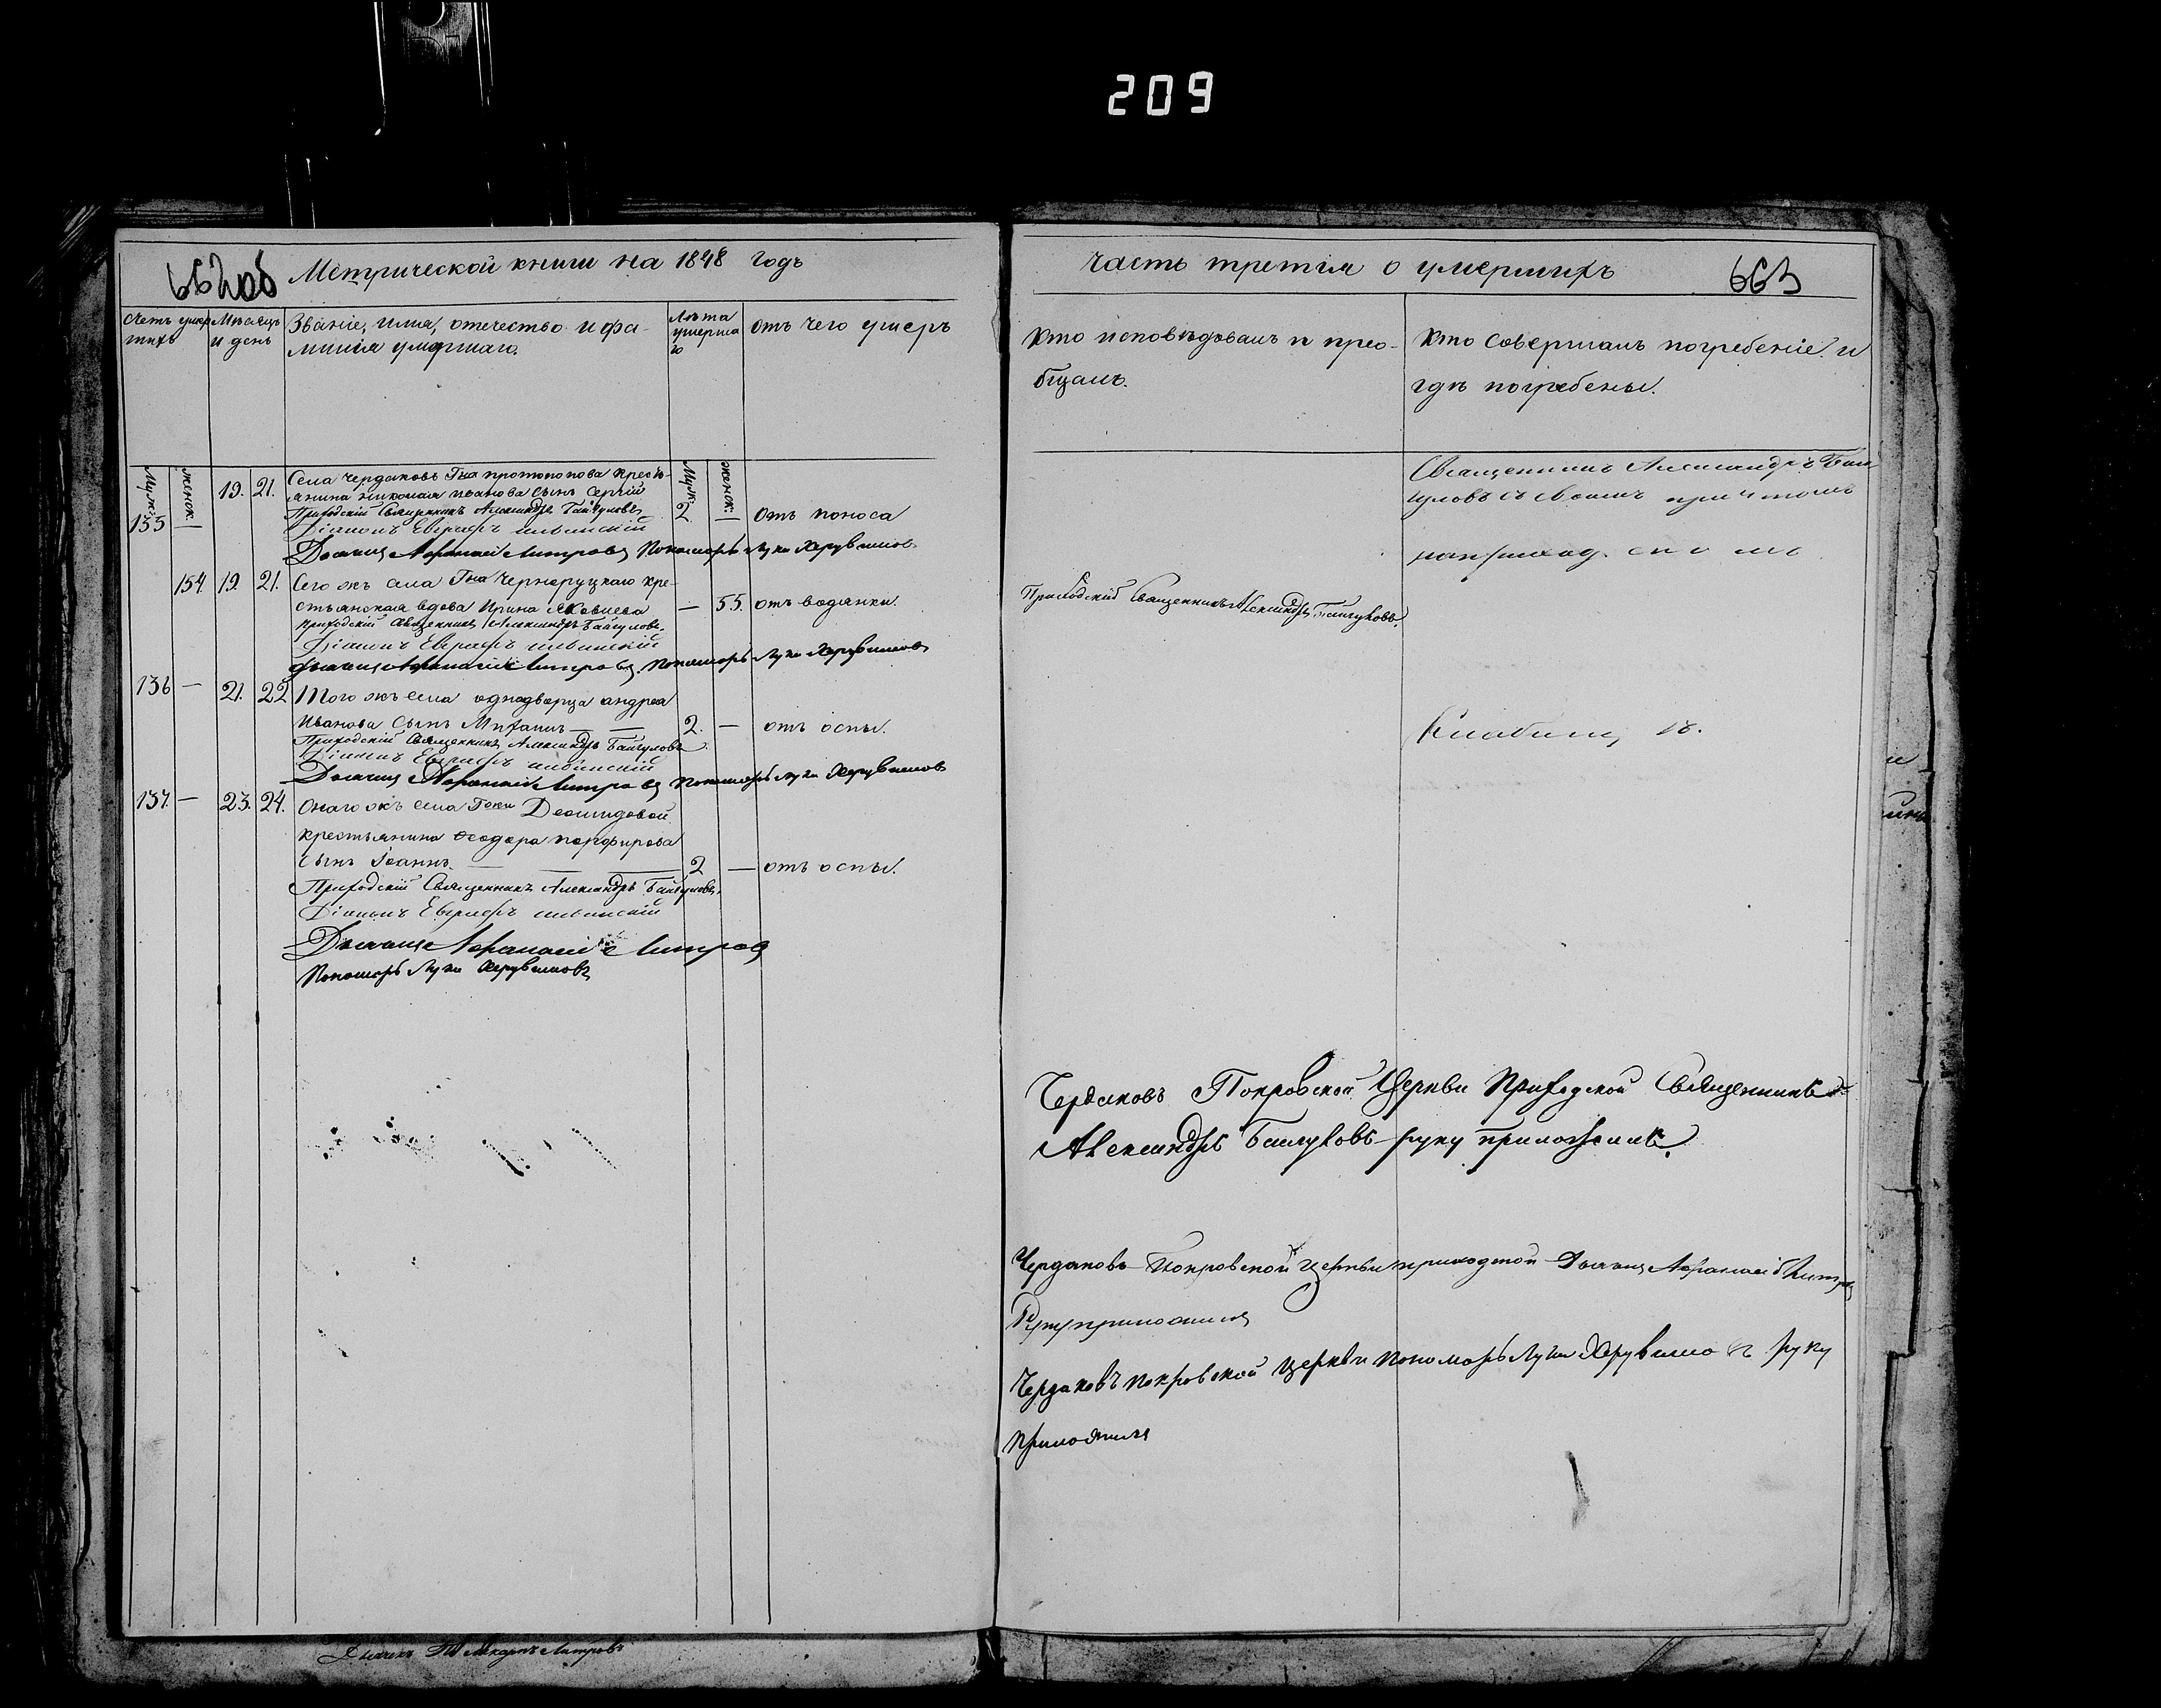 209
662 об
Метрической книги на 1848 годъ
Счетъ умер
шихъ
Мѣсяцъ
и день
Званіе, имя, отечество и фа-
милія умершаго.
Лѣта
умерша
го
отъ чего умеръ
Муж:
женск.
Муж:
женск:
135 — 19. 21. Села Чердаковъ Гна Протопопова кресть-
янина Николая Иванова сынъ Сергій 2 — отъ поноса
Приходскій Священникъ Александръ Байгуловъ
Діаконъ Евграфъ
Дьячекъ Афанасій Митровъ Пономарь Лука Херувимовъ
154 19. 21. Сего жъ села Гна Чернеруцкаго кре-
стьянская вдова Ирина Яковлева — 55. отъ водянки.
Приходскій Священникъ Александръ Байгуловъ.
Діаконъ Евграфъ
Дьячекъ Афанасій Митровъ Пономарь Лука Херувимовъ
136 — 21. 22 Того жъ села однодворца Андрея
Иванова сынъ — 2. — отъ оспы.
Приходскій Священникъ Александръ Байгуловъ.
Діаконъ Евграфъ
Дьячекъ Афанасій Митровъ Пономарь Лука Херувимовъ
137. — 23. 24. Онаго жъ села Гжи Деомидовой
крестьянина Ѳеодора Порфирова
сынъ Іоаннъ. — 2 — отъ оспы.
Приходскій Священникъ Александръ Байгуловъ.
Діаконъ Евграфъ
Дьячекъ Афанасій Митровъ
Пономарь Лука Херувимовъ
Дьячекъ Митровъ
часть третія о умершихъ
663
Кто исповѣдовалъ и прео-
бщалъ.
Кто совершалъ погребеніе и
гдѣ погребены.
Священникъ Александръ Бай
гуловъ съ своимъ причтомъ
на приход.
Приходскій Священникъ Александръ Байгуловъ.
Кладбищѣ.
Чердаковъ Покровской Церкви Приходской Священникъ
Александръ Байгуловъ руку приложилъ.
Чердаковъ Покровской церкви приходской Дьячекъ Афанасій Митровъ
Руку приложилъ
Чердаковъ Покровской церкви пономарь Лука Херувимовъ руку
приложилъ